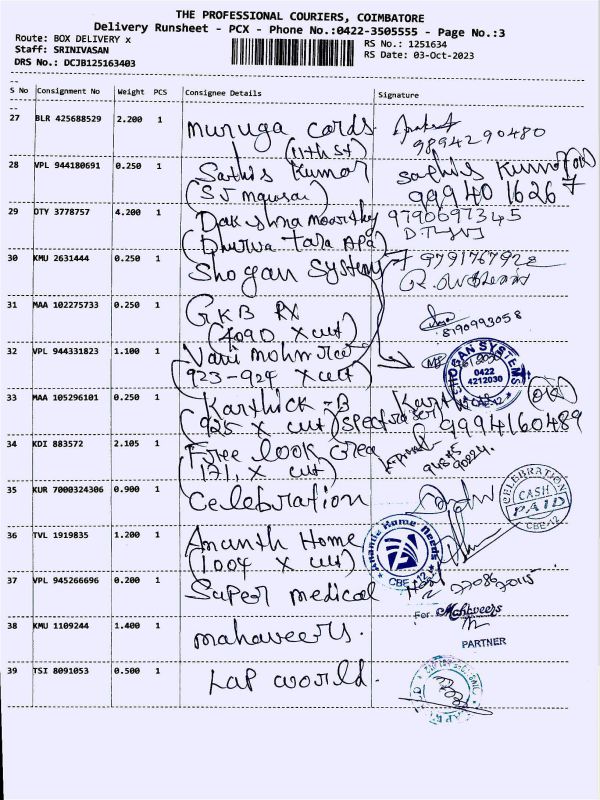 THE PROFESSIONAL COURIERS, COIMBATORE
Delivery Runsheet - PCX - Phone No.:0422-3505555 - Page No.:3
Route: BOX DELIVERY x
RS No.: 1251634
Staff: SRINIVASAN
RS Date: 03-Oct-2023
DRS No.: DCJB125163403
S No Consignment No Weight PCS Consignee Details Signature
27 BLR 425688529 2.200 1 muruga cards
(11th st) 9894290480
28 VPL 944180691 0.250 1 Sathis Kumar sathis Kumar
9994016267
29 DTY 3778757 4.200 1 Dakshna moorthy 9790697345
(Dhurwa Tara APa)
30 KMU 2631444 0.250 1 Shogan System 9791767928
31 MAA 102275733 0.250 1 GKB RX
(4090 X cut) 8190993058
32 VPL 944331823 1.100 1
(923-924 X cut)
SHOGAN SYSTEMS
0422
4212030
CBE-12
33 MAA 105296101 0.250 1 Karthick -B
(925 X cut) 9994160489
34 KDI 883572 2.105 1 Free look Crea
(171, X cut)
35 KUR 7000324306 0.900 1 Celebration
CELEBRATION
CASH
PAID
CBE-12
36 TVL 1919835 1.200 1 Ananth Home
(1004 X cut)
Ananda Home Needs
CBE-12
37 VPL 945266696 0.200 1 Super medical
38 KMU 1109244 1.400 1 mahaveers.
For Mahaveers
PARTNER
39 TSI 8091053 0.500 1 Lap world.